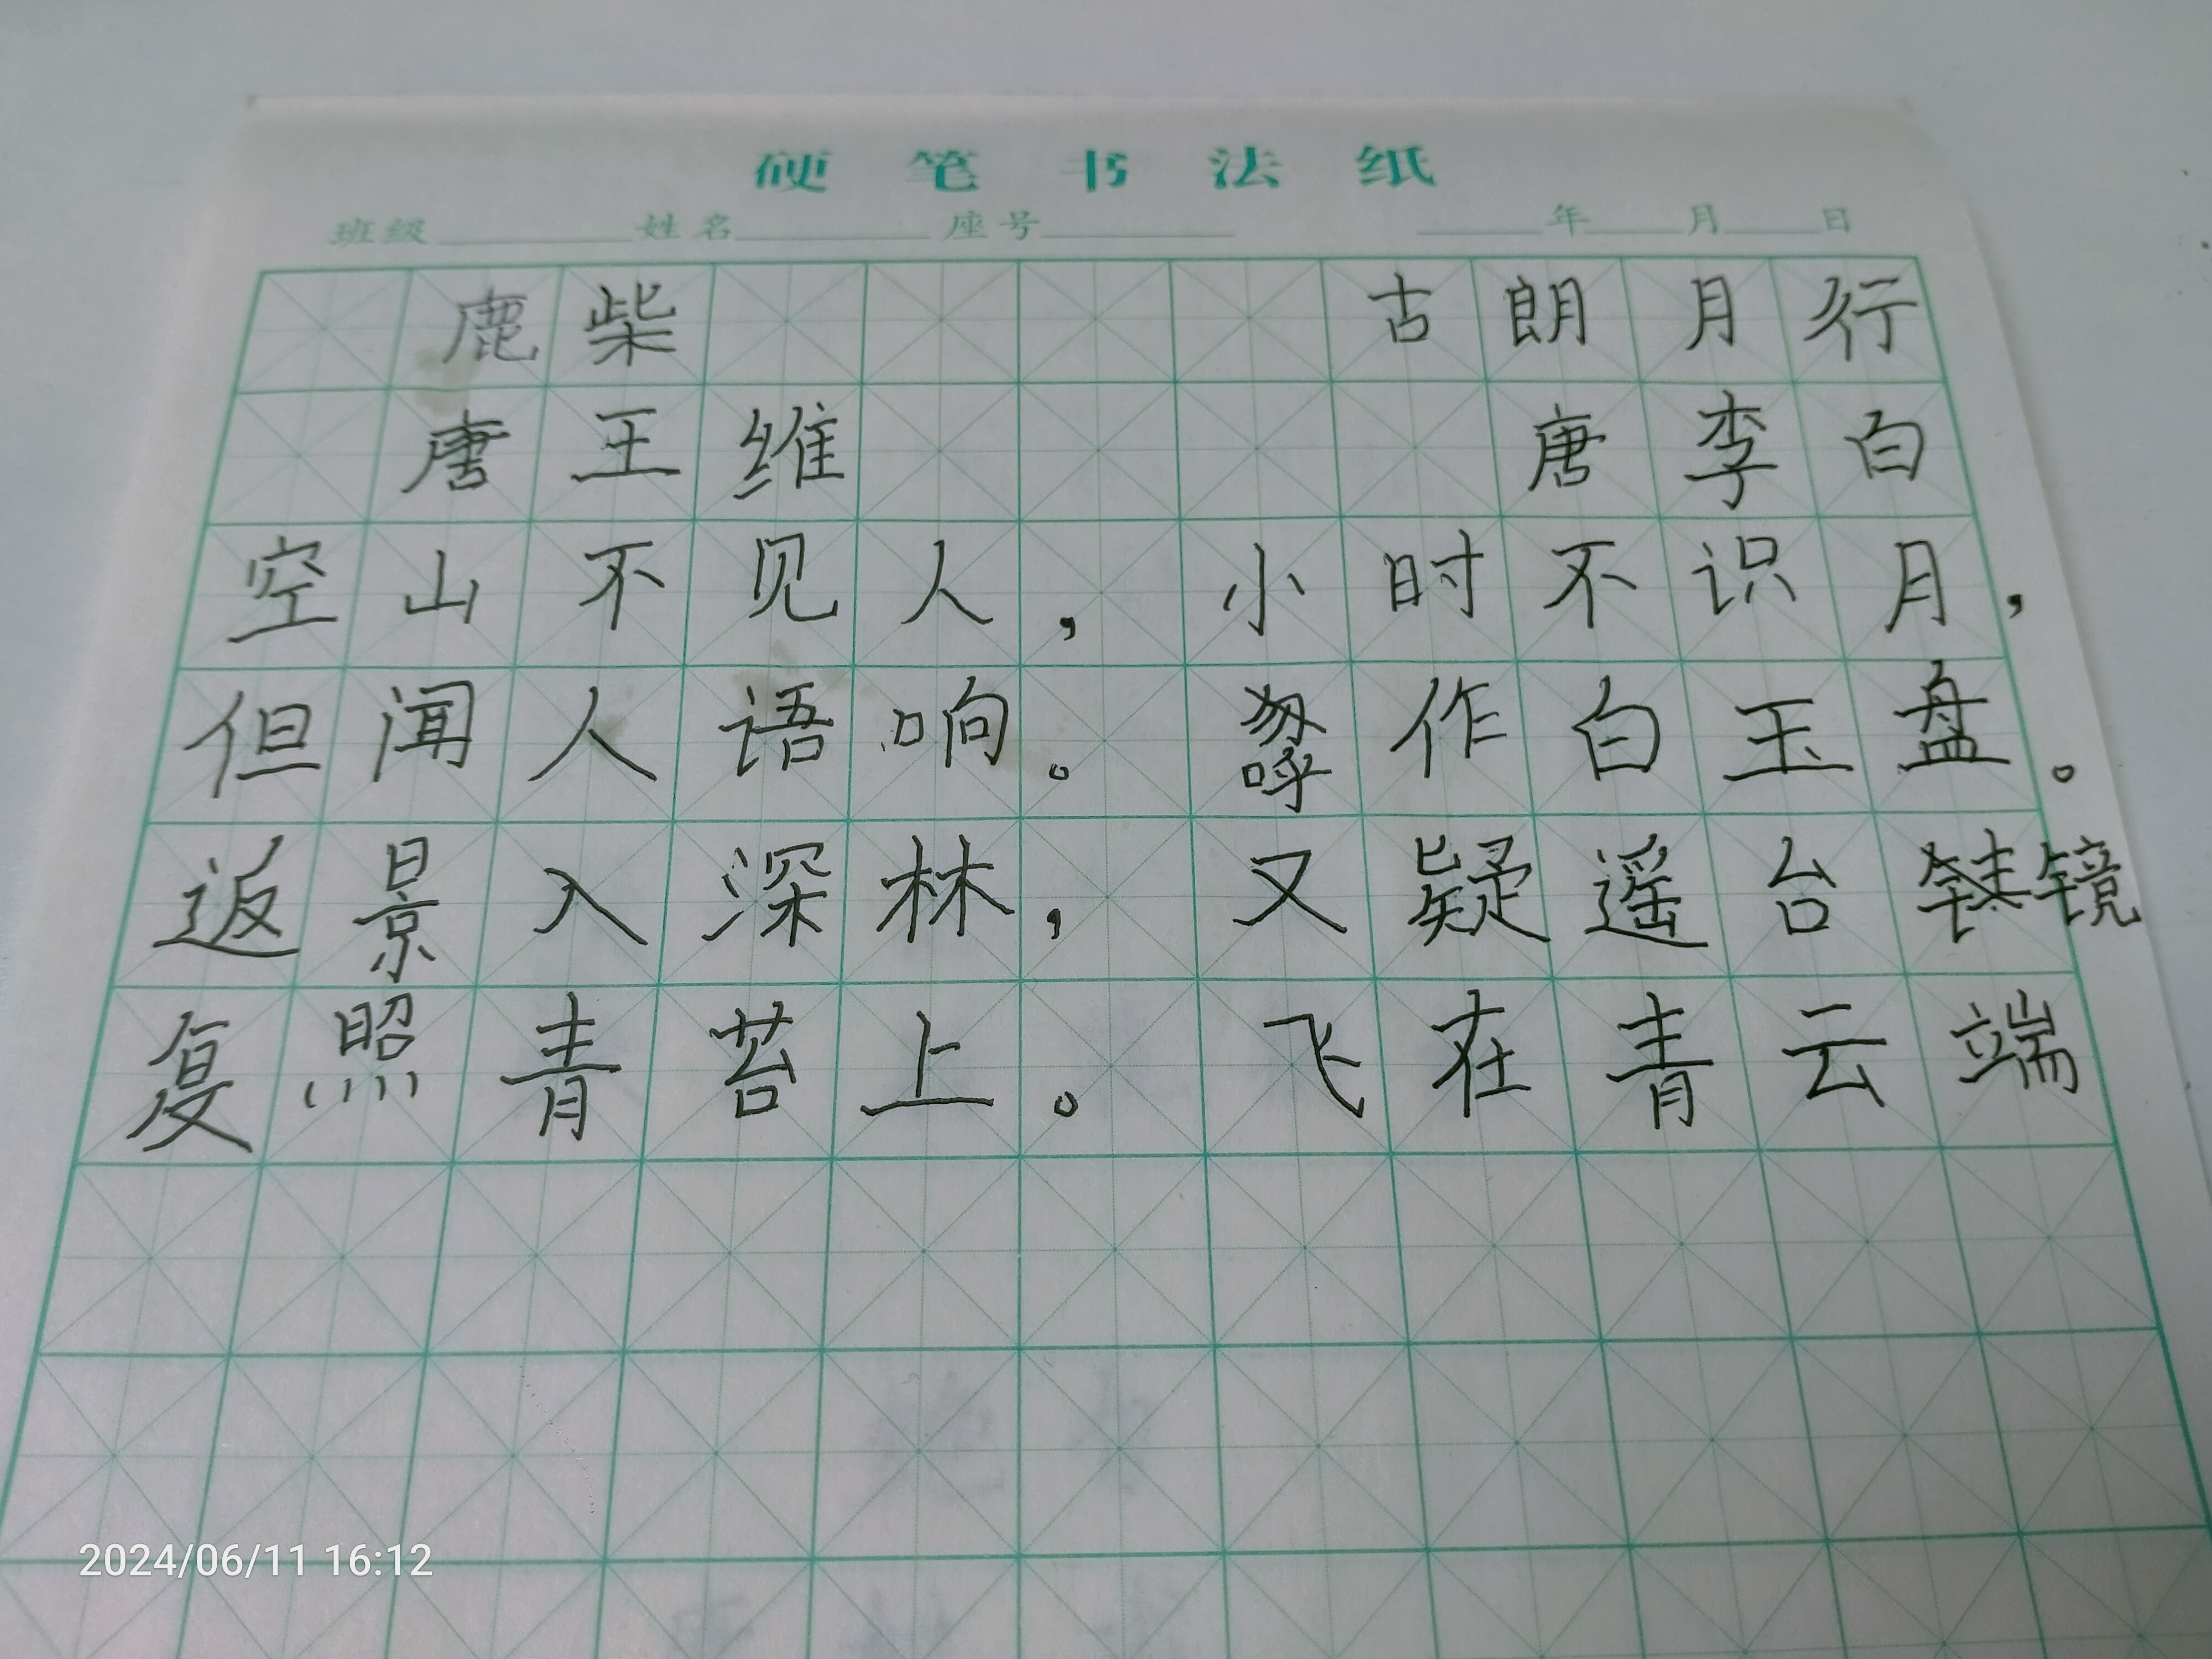 硬笔书法纸
班级 姓名 座号 年 月 日
鹿柴
唐王维
空山不见人，
但闻人语响。
返景入深林，
复照青苔上。
古朗月行
唐李白
小时不识月，
呼作白玉盘。
又疑遥台镜
飞在青云端
2024/06/11 16:12